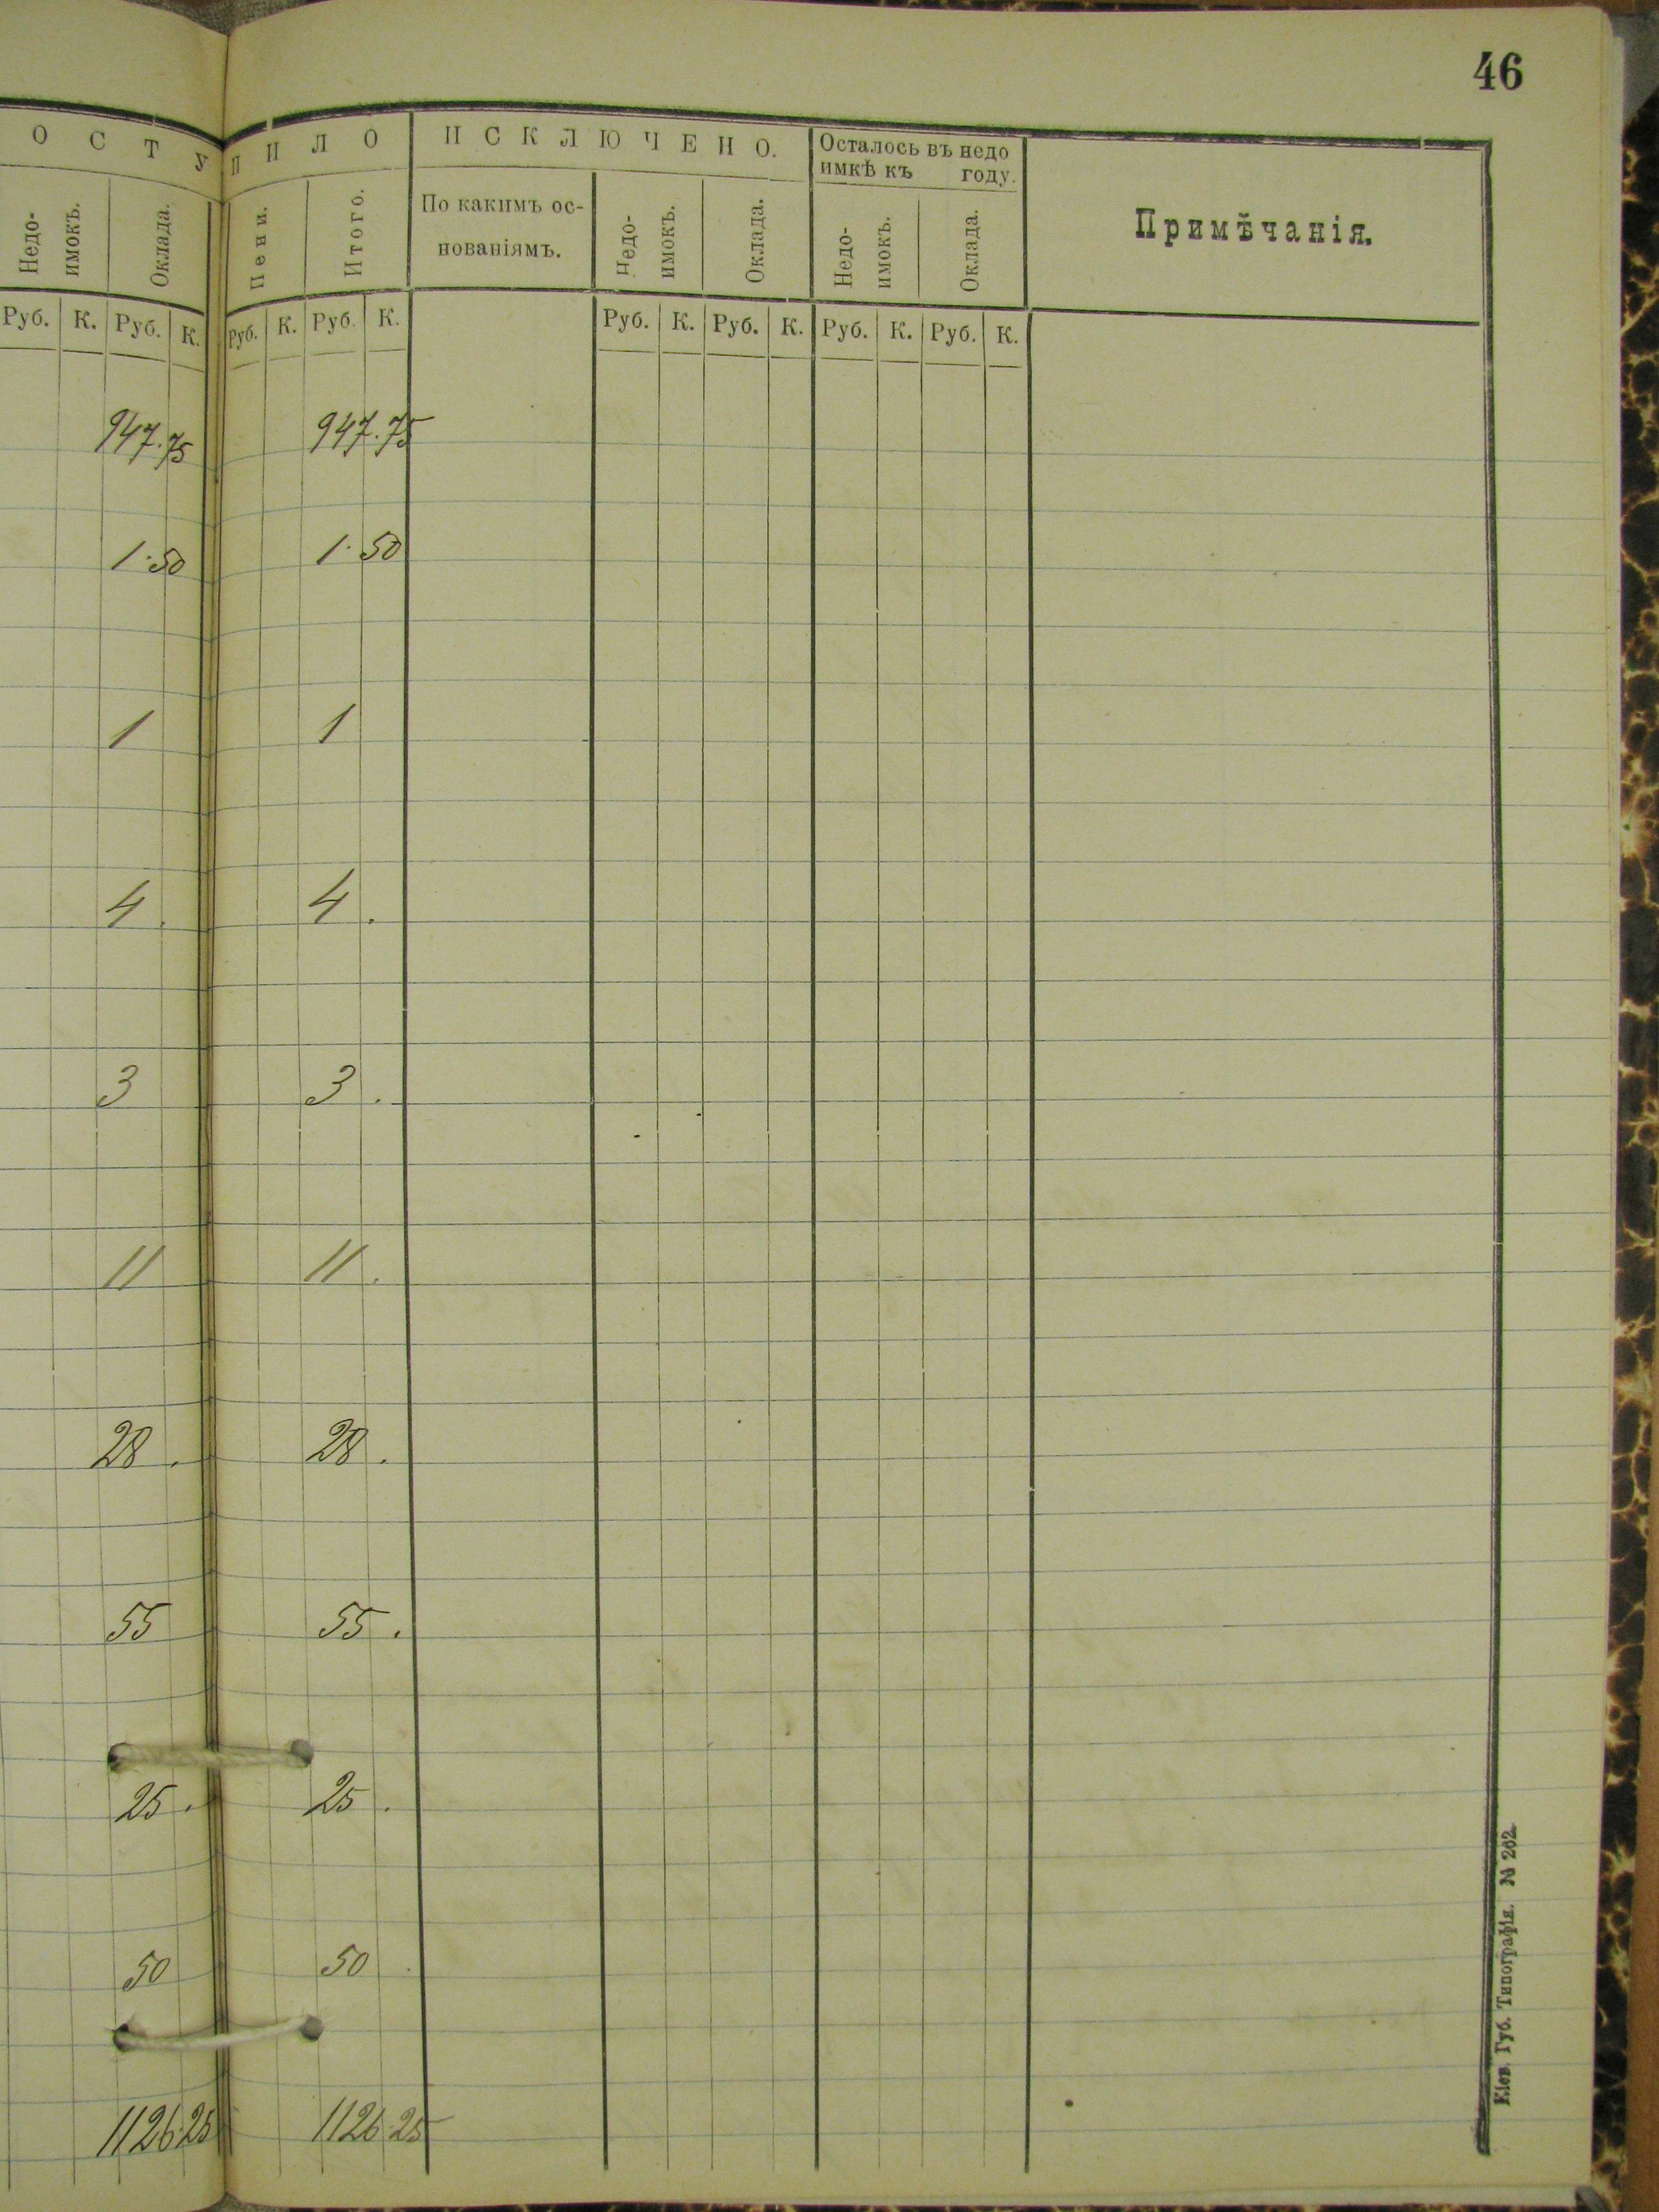 46
О С Т У П И Л О И С К Л Ю Ч Е Н О. Осталось въ недо
имкѣ къ году.
Недо-
имокъ. Оклада. Пени. Итого. По какимъ ос-
нованіямъ. Недо-
имокъ. Оклада. Недо-
имокъ. Оклада. Примѣчанія.
Руб. К. Руб. К. Руб. К. Руб. К. Руб. К. Руб. К. Руб. К. Руб. К.
947.75 947.75
1.50 1.50
1 1
4. 4.
3 3.
11 11.
28. 28.
55 55.
25. 25.
50 50
1126.25 1126.25
Кіев. Губ. Типографія. № 262.